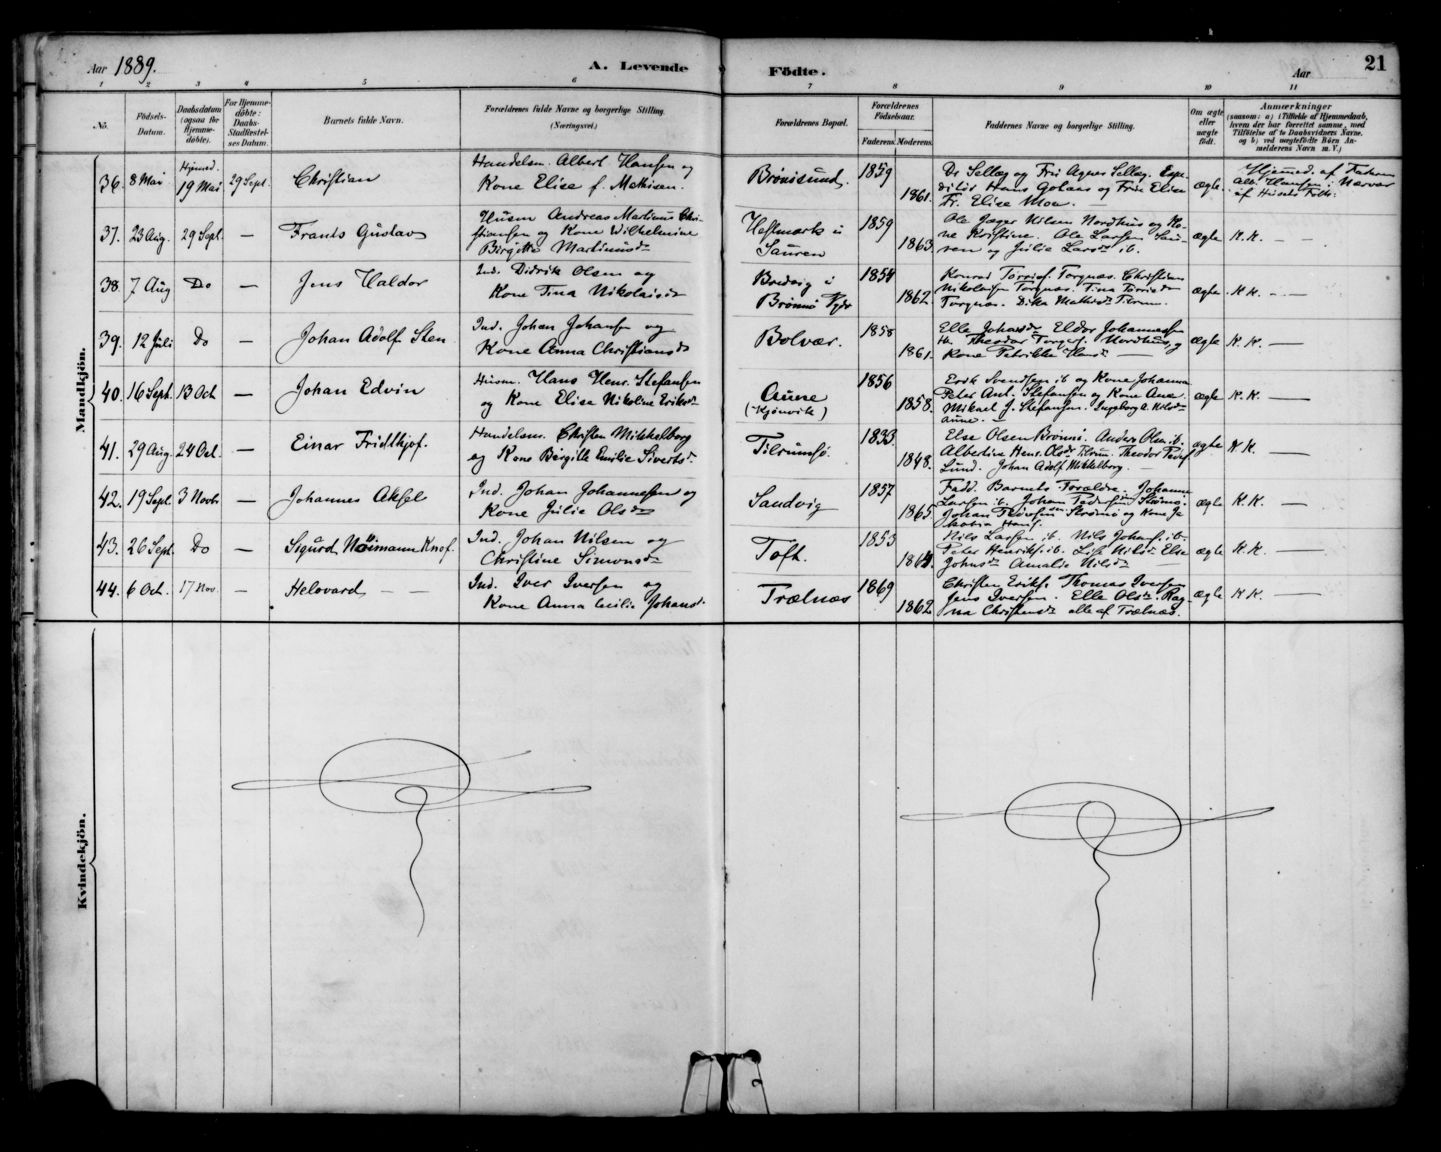 Aar 1889.
A. Levende
Fødte.
Aar
21
1 2 3 4 5 6 7 8 9 10 11
No.
Fødsels-Datum.
Daabsdatum (ogsaa for Hjemme-døbte).
For Hjemme-døbte: Daabs-Stadfæstel-ses Datum.
Barnets fulde Navn.
Forældrenes fulde Navne og borgerlige Stilling. (Næringsvei.)
Forældrenes Bopæl.
Forældrenes Fødselsaar.
Faderens. Moderens.
Faddernes Navne og borgerlige Stilling.
Om ægte eller uægte født.
Anmærkninger
(saasom: a) i Tilfælde af Hjemmedaab, hvem der har forrettet samme, med Tilføielse af to Daabsvidners Navne. og b) ved uægtefødte Børn An-melderens Navn m. V.)
Mandkjön.
36. 8 Mai Hjemmed. 19 Mai 29 Sept. Christian
Handelsm. Albert Hansen og
Kone Elise f. Mathisen.
Brønøsund. 1859 1861.
Dr Sellæg og Fru Agnes Sellæg. Expe-
ditør Hans Golaas og Frøk Elise
Fr. Elise Moe. —
ægte.
Hjemmed. af Faderen
Alb. Hansen:
af Husets Folk.
37. 23 Aug. 29 Sept. — Frants Gustav
Husm Andreas Martinus Chri-
stiansen og Kone Wilhelmine
Birgitte Martinusdr
Hestmark i
Sauren
1859 1863.
Ole Jæger Nilsen Nordhus og Ko-
ne Kristine. Ole Larsen Sau-
ren og Julie Larsdr ib.
ægte K.K. — —
38. 7 Aug Do — Jens Haldor
Ind. Didrik Olsen og
Kone Tina Nikolaisdr
Bredvig i
Brønnø
1854 1862.
Konrad Torgnæs. Christian
Nikolaisen Torgnæs. Tina
Torgnæs. Dika Mathisdr Tilrum.
ægte K.K. — —
39. 12 Juli Do — Johan Adolf Sten
Ind. Johan Johansen og
Kone Anna Christiansdr
Bolvær. 1858 1861.
Elle Johansdr Eldor Johannessen
Theodor Nordhus, og
Kone Petrikke Hansdr —
ægte K.K. —
40. 16 Sept. 13 Oct — Johan Edvin
Husm. Hans Henr. Stefansen
og Kone Elise Nikoline Eriksdr
Aune
(Kjønvik)
1856 1858.
Erik Svendsen ib og Kone Johanna
Peter Ant. Stefansen og Kone Ane.
Mikael J. Stefansen. Ingeborg A. Nilsdr
Aune. —
ægte K.K. —
41. 29 Aug. 24 Oct. — Einar Fridthjof.
Handelsm. Christen Mikkelborg
og Kone Birgitte Emilie Sivertsdr.
Tilrumsø. 1833. 1848.
Else Olsen Brønnø. Anders Olsen ib.
Albertine Henr. Olsdr Tilrum. Theodor
Lund. Johan Adolf Mikkelborg. —
ægte K.K. —
42. 19 Sept. 3 Novb. — Johannes Aksel
Ind. Johan Johannesen og
Kone Julie Olsdr
Sandvig 1857 1865
Fadd. Barnets Forældre. Johanna
Larsen ib. Johan Pedersen Strømø.
Johan Strømø og Kone Ja-
kobia Hansdr.
ægte K.K. —
43. 26 Sept. Do — Sigurd Nøimann Knof.
Ind. Johan Nilsen og
Christine Simonsdr
Toft. 1853 1864.
Nils Larsen ib. Nils Johansen ib.
Peter Henriksen ib. Nilsdr Else
Johnsdr Amalie Nilsdr —
ægte K.K. —
44. 6 Oct. 17 Nov. — Helovard — —
Ind. Iver Iversen og
Kone Anna Cecilie Johans.
Trælnæs 1869 1862
Christen Eriks. Thomas Iversen
Jens Iversen. Elle Olsdr Rag-
na Christensdr alle af Trælnæs.
ægte K.K. —
Kvindekjön.